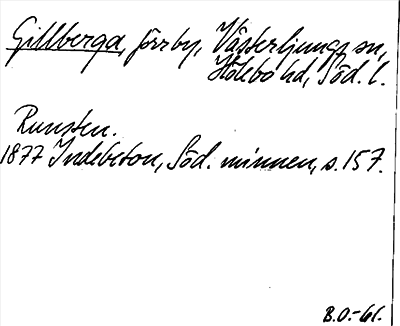 Gillberga, förr by, Västerljungs sn,
Hölebo hd, Söd. l.
Runsten.
1877 Indebetou, Söd. minnen, s. 157.
B.O.-61.